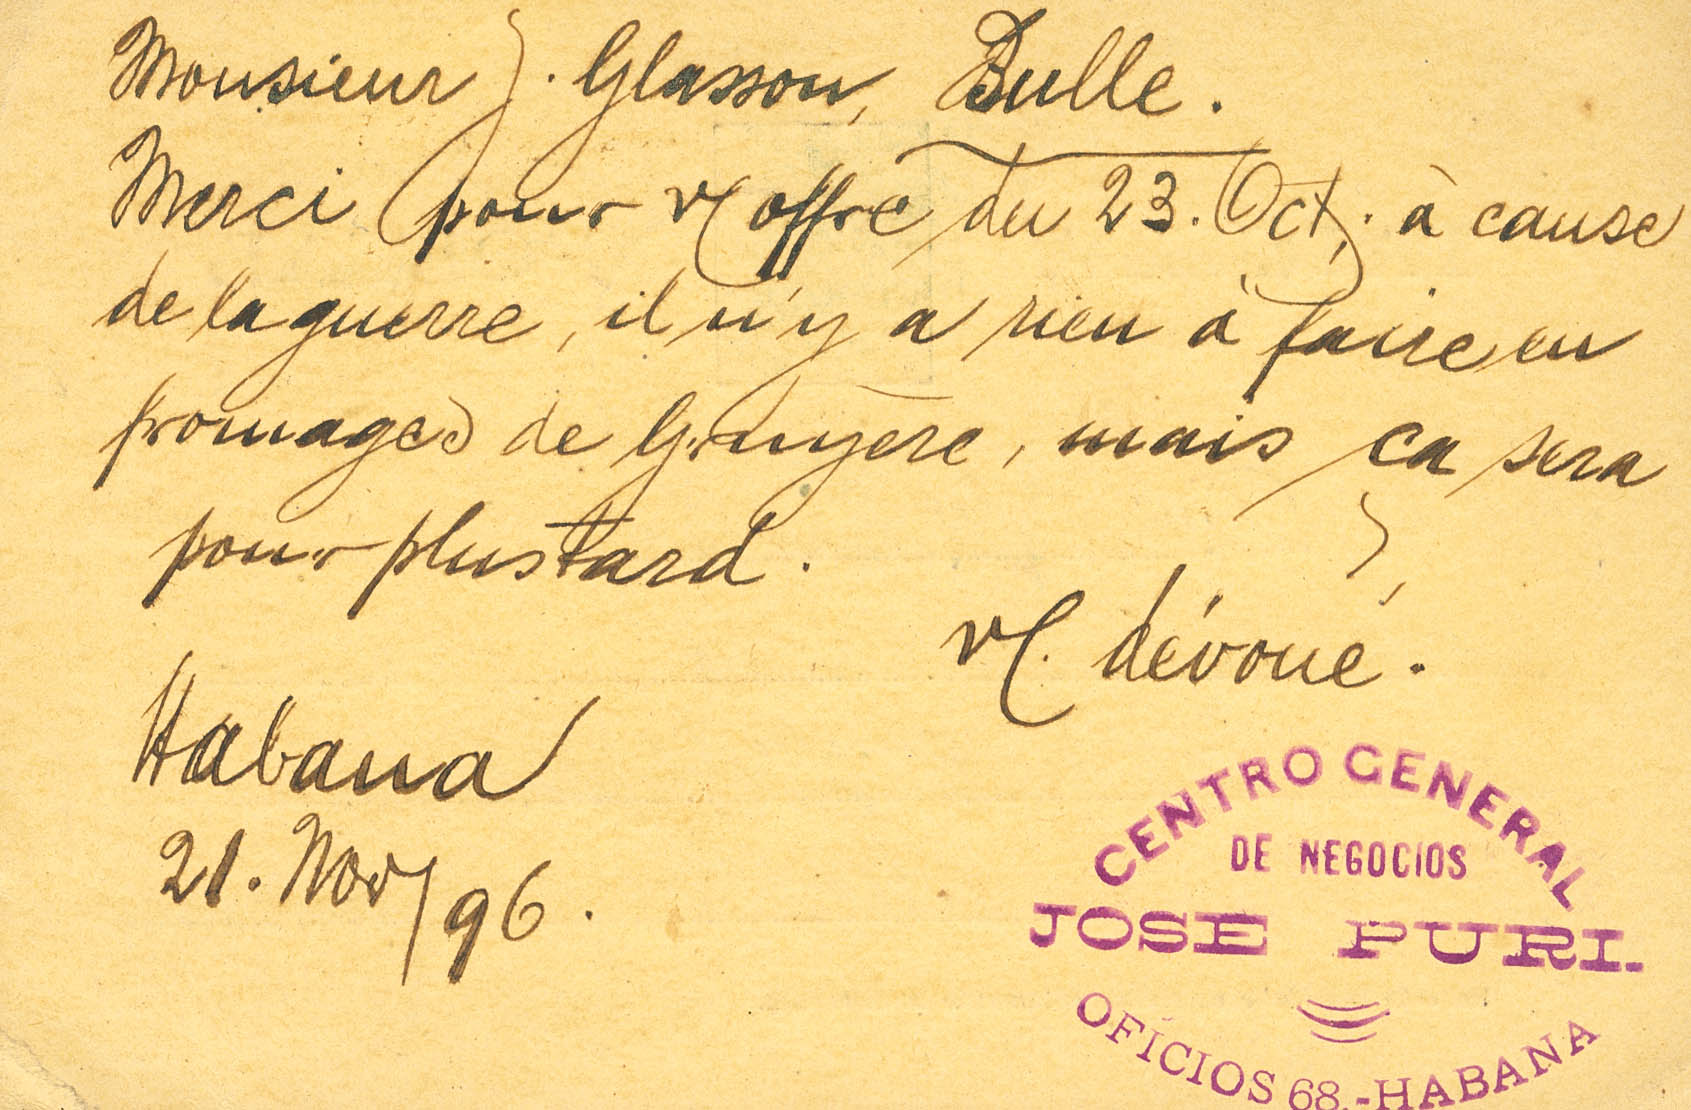 Monsieur J. Glasson, Bulle.
Merci pour v/ offre du 23. Oct. à cause
de la guerre, il n'y a rien à faire en
fromages de Gruyère, mais ça sera
pour plus tard.
v/. dévoué.
Habana
21. Nov/96.
CENTRO GENERAL
DE NEGOCIOS
JOSE PURI.
OFICIOS 68.-HABANA